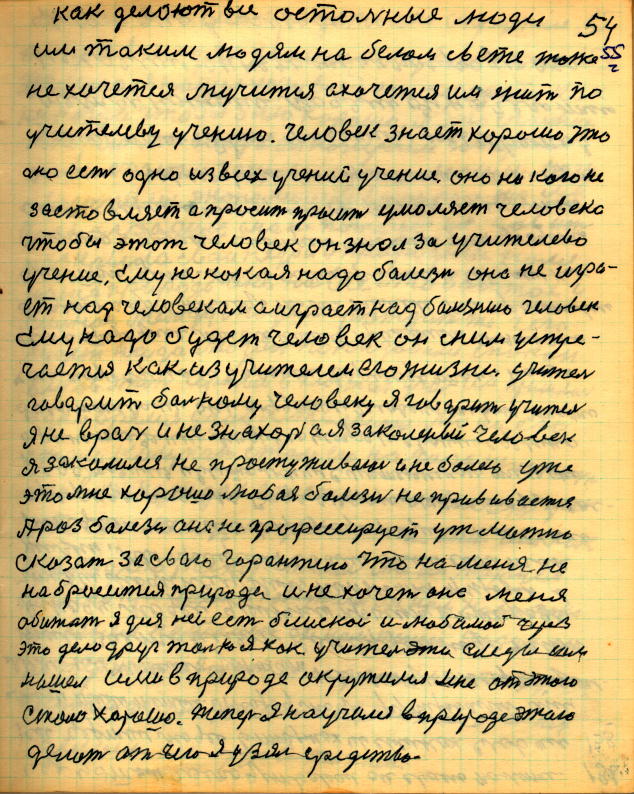 как делоют все остомные люди 54
им таким людям на белом свете тоже 55
не хочется мучится а хочется им жит по
учителеву учению. Человек знает хорошо это
оно ест одно из всех учений учение. оно ни кого не
застовляет а просит просит умоляет человека
чтобы этот человек он знал за учителево
учение. Ему не кокая надо балезн она не игра-
ет над человекам а играет над балезнию человек
Ему надо будет человек он сним устре-
чается как из учителем его жизни. учител
говарит болному человеку я говарит учител
я не врач и не знахор а я заколеный человек
я закалился не простуживаюс и не болею уже
это мне хорошо любая балезн не прививается
А раз балезн она не прогрессирует уж можно
сказат за сваю горантию что на меня не
наброситсa природа и не хочет она меня
обижат я для неё ест близкой и любимой через
это дело друг толко я как учител эти следы сам
нашел ими в природе окружился мне от этого
стало хорошо. Тепер я научился в природе этаго
делат от чего я узял средства.